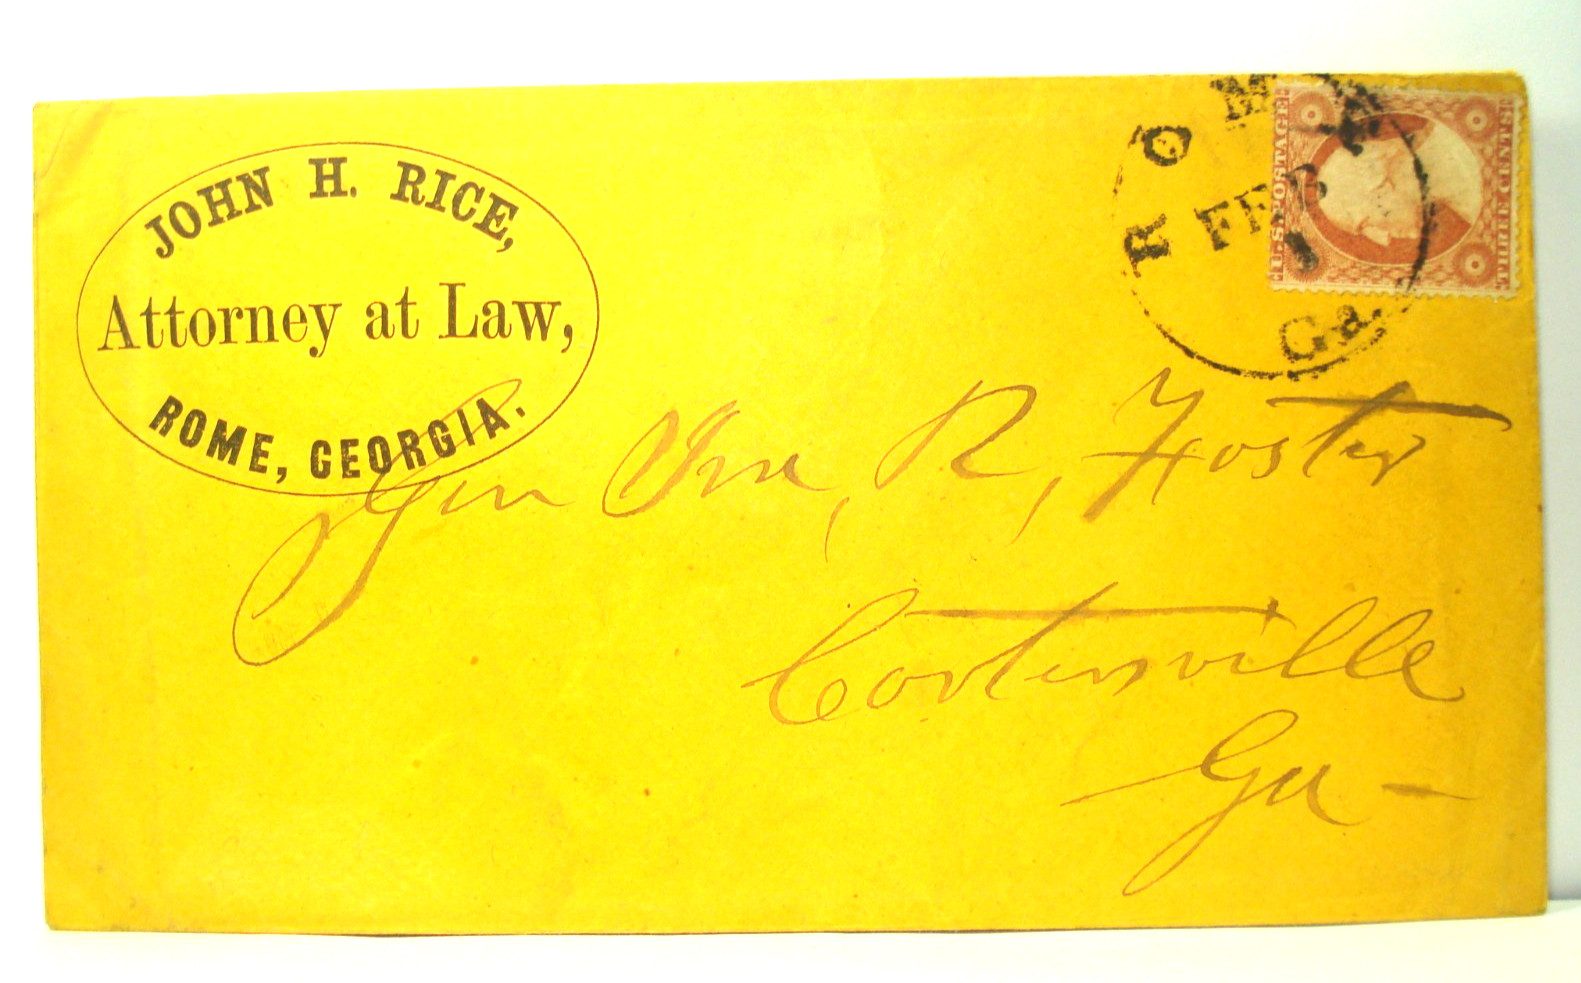 JOHN H. RICE,
Attorney at Law,
ROME, GEORGIA.
ROME
FEB
1
Ga.
U.S. POSTAGE
THREE CENTS
Gen Ira, R, Foster
Cartersville
Ga -